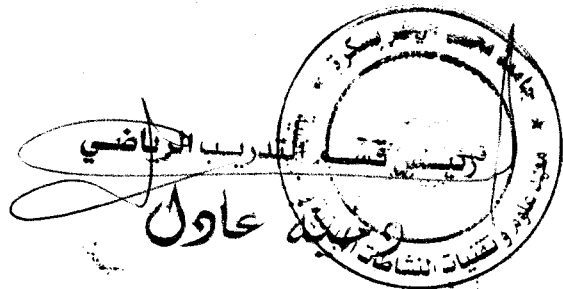 جامعة محمد خيضر بسكرة
معهد علوم و تقنيات النشاطات
رئيس قسم التدريب الرياضي
عادل